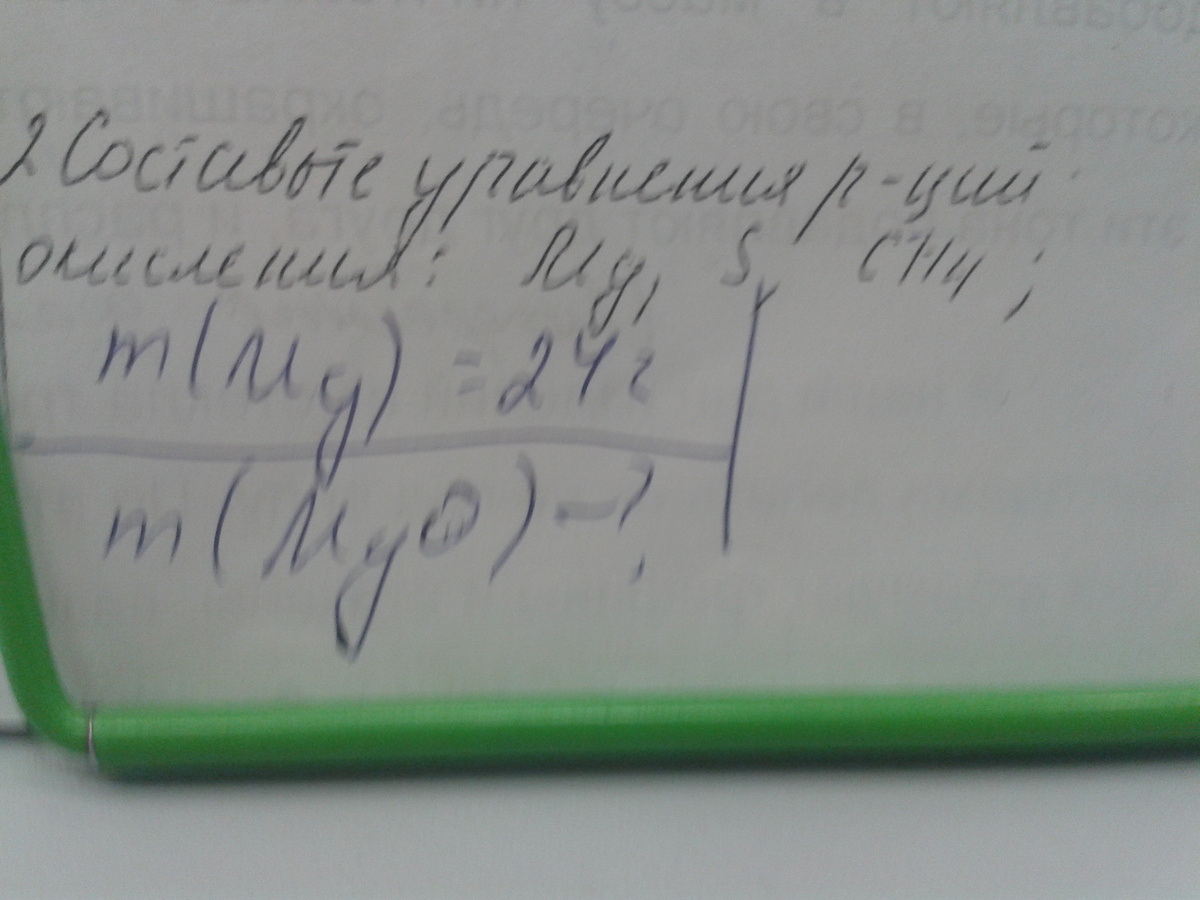 2 Составьте уравнения р-ций
окисления: Mg, S, CH4;
m(Mg) = 24г
m(MgO) - ?